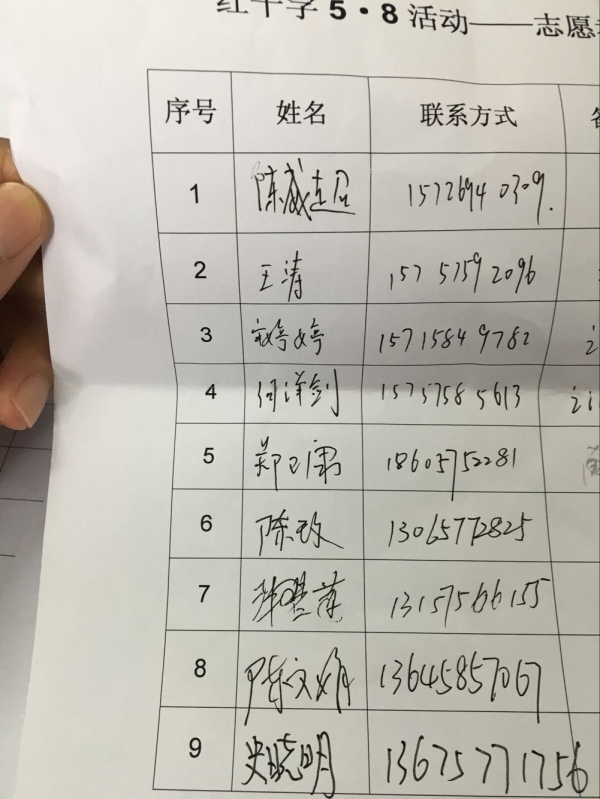 红十字 5·8 活动——志愿
序号 姓名 联系方式
1 陈威 15726940309.
2 王涛 15757592096
3 婷婷 15715849782
4 何洋剑 15757585613
5 郑 18605752281
6 陈玫 13065772825
7 13157566155
8 陈文娟 13645857067
9 史晓明 13675771756